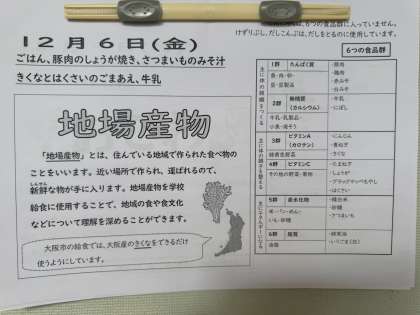 12月6日(金)
ごはん、豚肉のしょうが焼き、さつまいものみそ汁
きくなとはくさいのごまあえ、牛乳
地場産物
「地場産物」とは、住んでいる地域で作られた食べ物
のことをいいます。近い場所で作られ、運ばれるので、
しんせん
新鮮な物が手に入ります。地場産物を学校
給食に使用することで、地域の食や食文化
などについて理解を深めることができます。
大阪市の給食では、大阪産のきくなをできるだけ
使うようにしています。
6つの食品群に入っていません。
けずりぶし、だしこんぶは、だしをとるのに使用しています。
6つの食品群
主に体の組織をつくる
1群 たんぱく質
魚・肉・卵・
豆・豆製品
・豚肉
・鶏肉
・赤みそ
・白みそ
2群 無機質
(カルシウム)
牛乳・乳製品・
小魚・海そう
・牛乳
・にぼし
主に体の調子を整える
3群 ビタミンA
(カロテン)
緑黄色野菜
・にんじん
・青ねぎ
・きくな
4群 ビタミンC
その他の野菜・果物
・たまねぎ
・しょうが
・はくさい
5群 炭水化物
米・パン・めん・
いも・砂糖
・精白米
・砂糖
・さつまいも
6群 脂質
油脂
・綿実油
・いりごま(白)